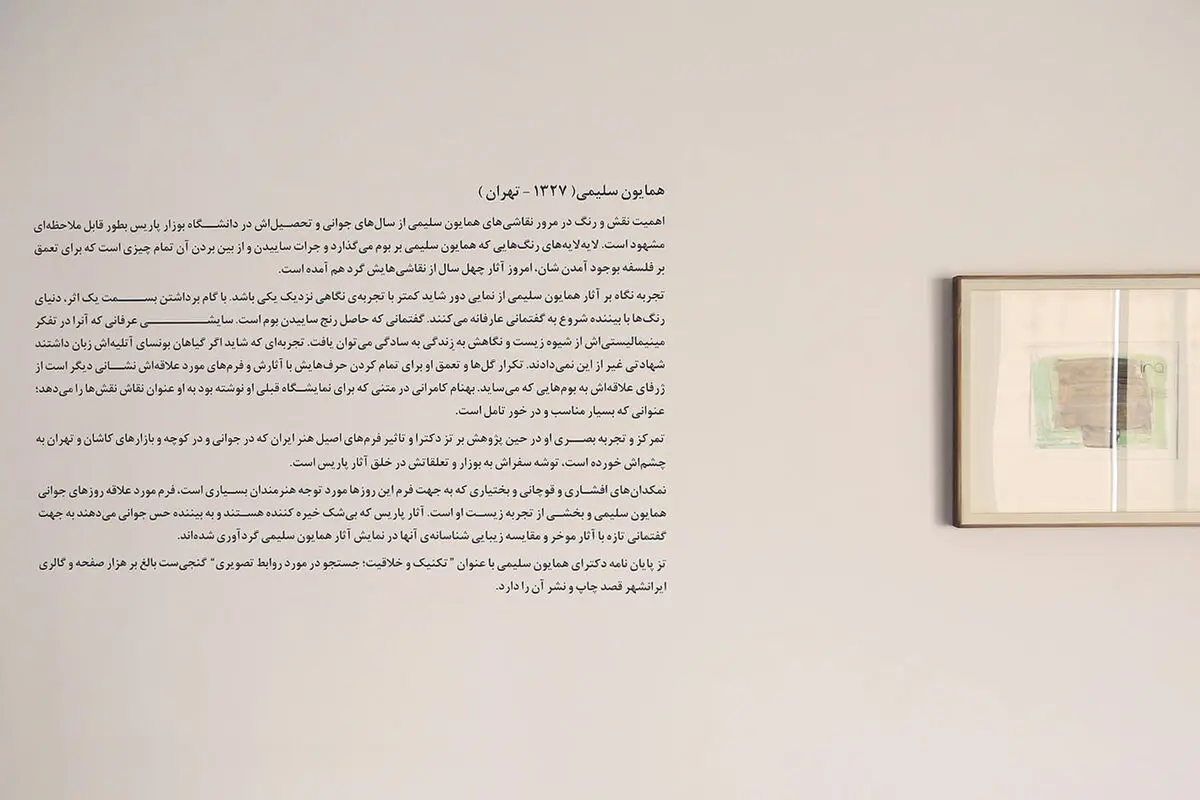 همایون سلیمی( ۱۳۲۷ - تهران )
اهمیت نقش و رنگ در مرور نقاشی‌های همایون سلیمی از سال‌های جوانی و تحصیل‌اش در دانشگاه بوزار پاریس بطور قابل ملاحظه‌ای
مشهود است. لایه‌لایه‌های رنگ‌هایی که همایون سلیمی بر بوم می‌گذارد و جرات ساییدن و از بین بردن آن تمام چیزی است که برای تعمق
بر فلسفه بوجود آمدن شان، امروز آثار چهل سال از نقاشی‌هایش گرد هم آمده است.
تجربه نگاه بر آثار همایون سلیمی از نمایی دور شاید کمتر با تجربه‌ی نگاهی نزدیک یکی باشد. با گام برداشتن بسمت یک اثر، دنیای
رنگ‌ها با بیننده شروع به گفتمانی عارفانه می‌کنند. گفتمانی که حاصل رنج ساییدن بوم است. سایشی عرفانی که آنرا در تفکر
مینیمالیستی‌اش از شیوه زیست و نگاهش به زندگی به سادگی می‌توان یافت. تجربه‌ای که شاید اگر گیاهان بونسای آتلیه‌اش زبان داشتند
شهادتی غیر از این نمی‌دادند. تکرار گل‌ها و تعمق او برای تمام کردن حرف‌هایش با آثارش و فرم‌های مورد علاقه‌اش نشانی دیگر است از
ژرفای علاقه‌اش به بوم‌هایی که می‌ساید. بهنام کامرانی در متنی که برای نمایشگاه قبلی او نوشته بود به او عنوان نقاش نقش‌ها را می‌دهد؛
عنوانی که بسیار مناسب و در خور تامل است.
تمرکز و تجربه بصری او در حین پژوهش بر تز دکترا و تاثیر فرم‌های اصیل هنر ایران که در جوانی و در کوچه و بازارهای کاشان و تهران به
چشم‌اش خورده است، توشه سفراش به بوزار و تعلقاتش در خلق آثار پاریس است.
نمکدان‌های افشاری و قوچانی و بختیاری که به جهت فرم این روزها مورد توجه هنرمندان بسیاری است، فرم مورد علاقه روزهای جوانی
همایون سلیمی و بخشی از تجربه زیست او است. آثار پاریس که بی‌شک خیره کننده هستند و به بیننده حس جوانی می‌دهند به جهت
گفتمانی تازه با آثار موخر و مقایسه زیبایی شناسانه‌ی آنها در نمایش آثار همایون سلیمی گردآوری شده‌اند.
تز پایان نامه دکترای همایون سلیمی با عنوان "تکنیک و خلاقیت؛ جستجو در مورد روابط تصویری" گنجی‌ست بالغ بر هزار صفحه و گالری
ایرانشهر قصد چاپ و نشر آن را دارد.